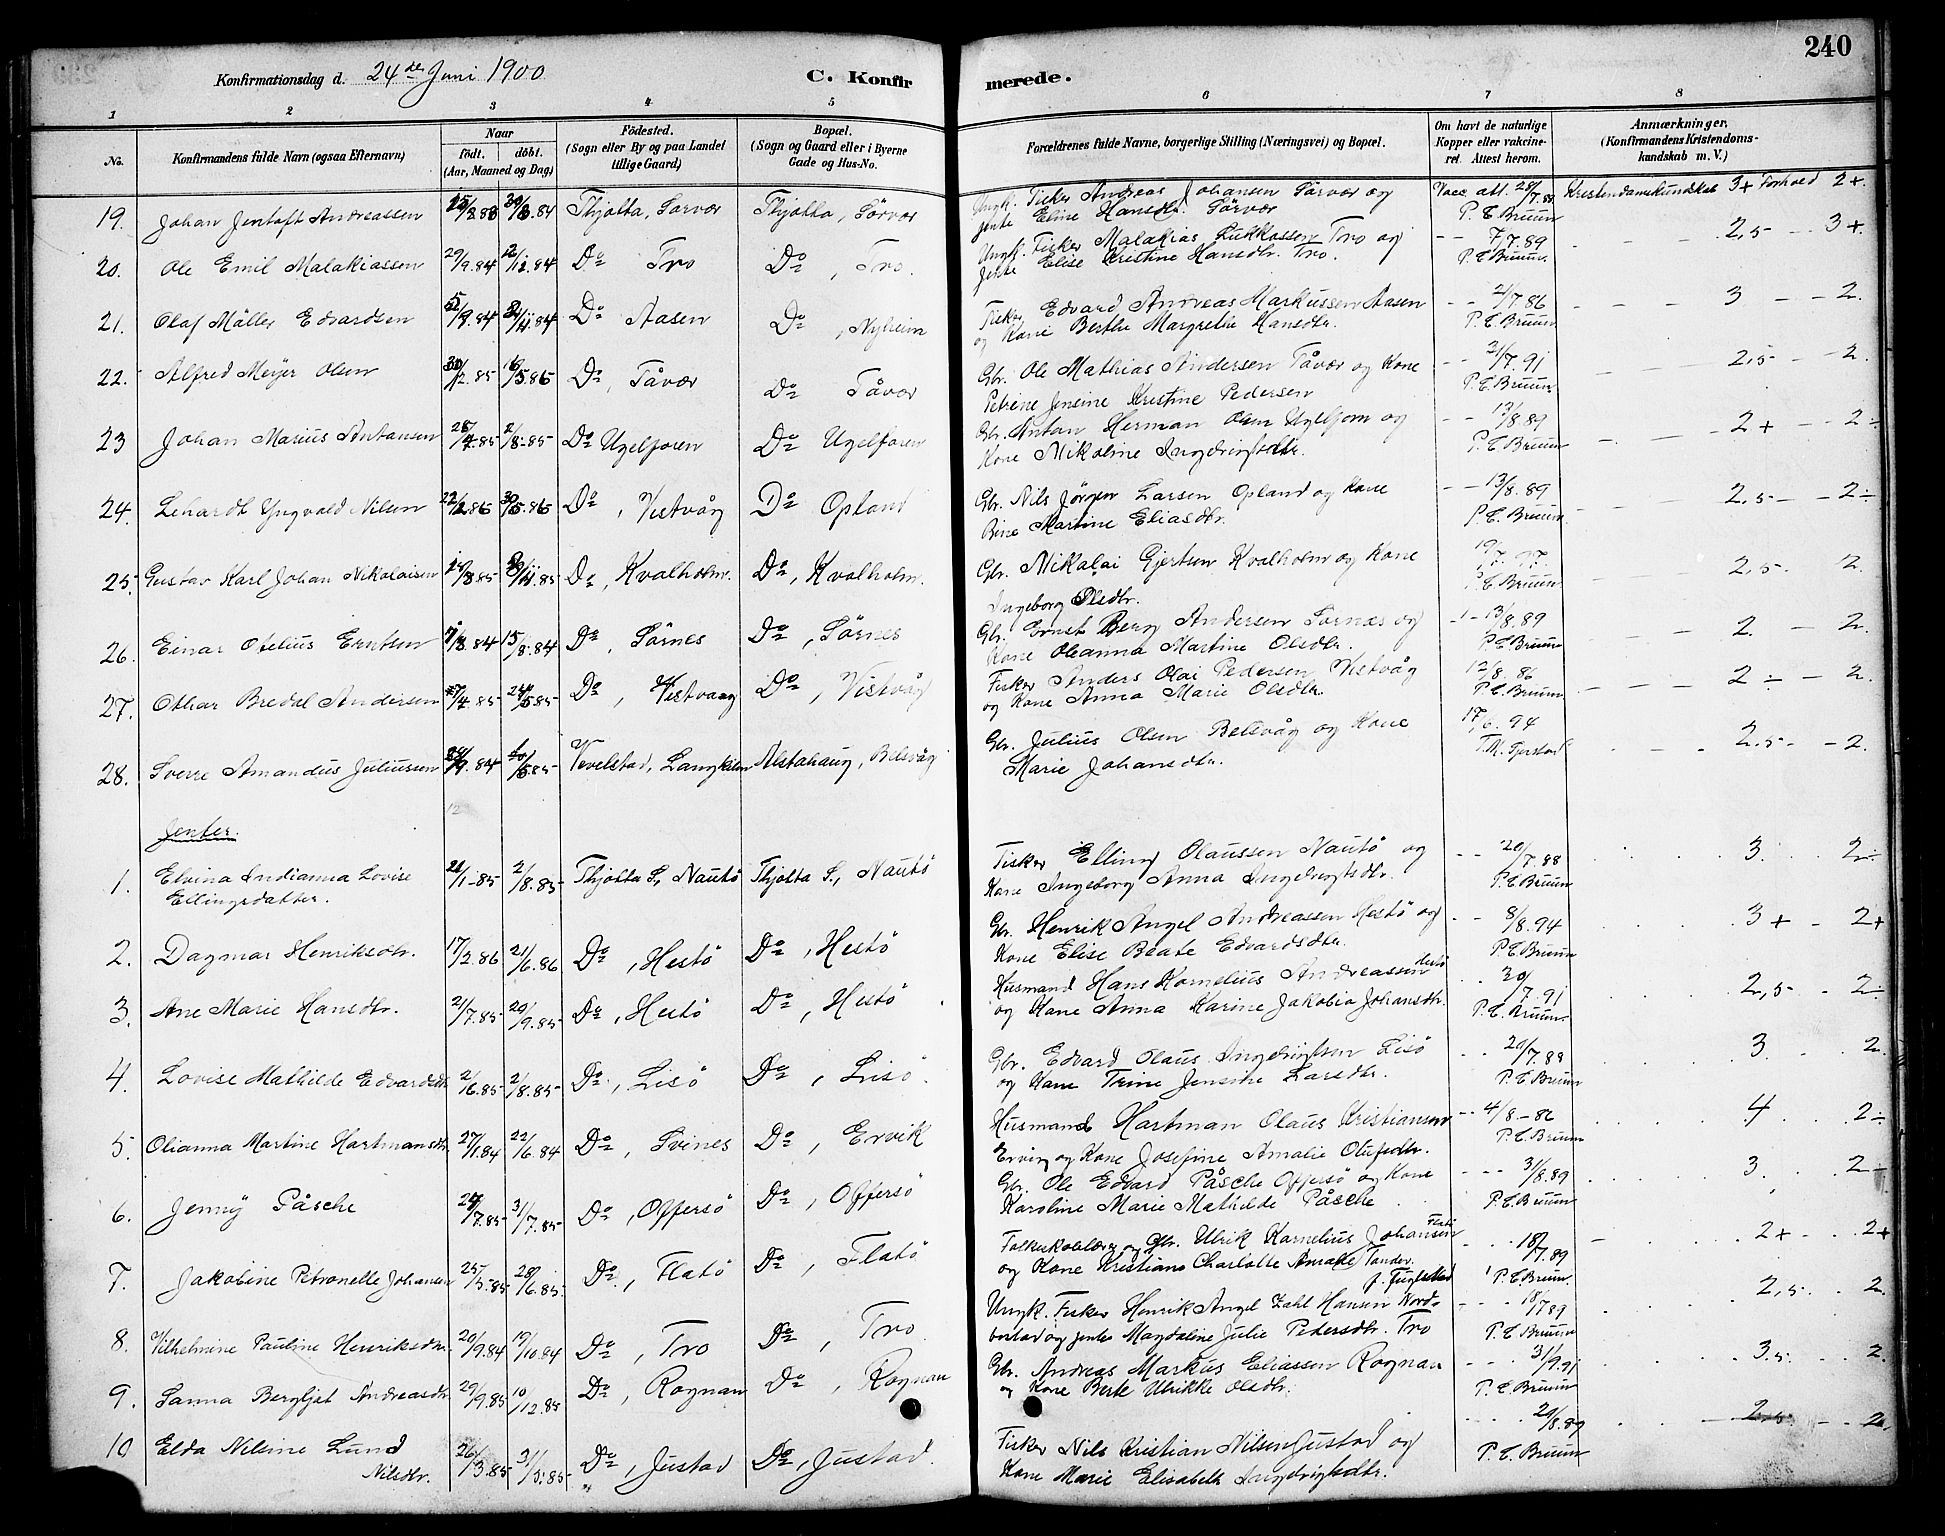 240
Konfirmationsdag d. 24de Juni 1900
C. Konfirmerede.
1 2 3 4 5 6 7 8
No.
Konfirmandens fulde Navn (ogsaa Efternavn)
Naar
født. døbt.
(Aar, Maaned og Dag)
Fødested.
(Sogn eller By og paa Landet
tillige Gaard)
Bopæl.
(Sogn og Gaard eller i Byerne
Gade og Hus-No.
Forældrenes fulde Navne, borgerlige Stilling (Næringsvei) og Bopæl.
Om havt de naturlige
Kopper eller vakcine-
ret. Attest herom.
Anmærkninger.
(Konfirmandens Kristendoms-
kundskab m. V.)
19. Johan Jentoft Andreassen Thjøtta, Sørvær Thjøtta, Sørvær Ungk. Fisker Andreas Johansen Sørvær og Vacc. att. Kristendomskundskab 3+ Forhold 2+.
jente Eline Hansdtr. Sørvær P. C. Bruun
20. Ole Emil Malakiassen 29/9.84 Do Tro Do, Tro. Ungk. Fisker Malakias Lukkassen Tro og 7/7.89 2,5 3+.
jente Elise Kristine Hansdtr. Tro. P. C. Bruun.
21. Olaf Møller Edvardsen Do Aasen Do, Nyheim Fisker Edvard Andreas Markussen Aasen 2/7.86 3 2.
og Kone Berthe Margrethe Hansdtr. P. C. Bruun
22. Alfred Meyer Olsen Do, Tåvær Do Tåvær Gbr. Ole Mathias Andersen Tåvær og Kone 31/7.91 2,5 2.
Petrine Jensine Kristine Pedersen P. C. Bruun
23 Johan Marius Antonsen 2/8.85 Do Ugelforen Do Ugelforen Gbr. Anton Herman Olsen og 13/8.89 2+ 2÷
Kone Nikoline Ingebrigtsdtr. P. C. Bruun
24. Lenardt Yngvald Nilsen Do, Vistvåg Do Opland Gbr. Nils Jørgen Larsen Opland og Kone 13/8.89 2,5 2÷
Bine Martine Eliasdtr. P. C. Bruun
25. Gustav Karl Johan Nikolaisen Do, Kvalholm. Do, Kvalholm. Gbr. Nikolai Gjertsen Kvalholm og Kone 2,5 2.
Ingeborg Olsdtr. P. C. Bruun
26. Einar Otelius Erntsen 15/8.84 Do, Sørnes Do, Sørnes Gbr. Ernst Berg Andersen Sørnæs og 13/8.89 2. 2.
Kone Oleanna Martine Olsdtr. P. C. Bruun
27. Othar Bredal Andersen Do, Vistvaag Do, Vistvåg Fisker Anders Olai Pedersen Vistvåg 12/8.86 2÷ 2.
og Kone Anna Marie Olsdtr. P. C. Bruun
28. Sverre Amandus Juliussen Vevelstad, Alstahaug, Gbr. Julius Olsen og Kone 17/6.94 2,5 2.
Marie Johansdtr.
Jenter.
1. Elvina Indianna Lovise 21/1-85 2/8.85 Thjøtta S., Nautø Thjøtta S., Nautø Fisker Elling Olaussen Nautø og 20/7.88 3. 2÷
Ellingsdatter. Kone Ingeborg Anna Ingebrigtsdtr. P. C. Bruun
2. Dagmar Henriksdtr. 17/2.86 21/6.86 Do, Hestø Do, Hestø Gbr. Henrik Angel Andreassen Hestø og 8/8.94 3+ 2+
Kone Elise Beate Edvardsdtr. P. C. Bruun
3. Ane Marie Hansdtr. 21/7.85 20/9.85 Do, Hestø Do, Hestø Husmand Hans Kornelius Andreassen Hestø 30/7.91 2,5 2÷
og Kone Anna Karine Jakobia Johansdtr. P. C. Bruun.
4. Lovise Mathilde Edvardsdtr. 2/6.85 2/8.85 Do, Lisø Do, Lisø. Gbr. Edvard Olaus Ingebrigtsen Lisø 20/7.89 3. 2.
og Kone Trine Jensine Larsdtr. P. C. Bruun
5. Olianna Martine Hartmansdtr. 27/1.84 22/6.84 Do, Svines Do, Ervik Husmand Hartman Olaus Kristiansen 4/8-86 4 2÷
og Kone Josefine Amalie Olufsdtr. P. C. Bruun
6. Jenny Påsche 31/7.85 Do, Offersø Do, Offersø Gbr. Ole Edvard Påsche Offersø og Kone 31/8.89 3 2÷
Karoline Marie Mathilde Påsche P. C. Bruun
7. Jakobine Petronelle Johansen 25/3.85 28/6.85 Do, Flatø Do, Flatø Folkeskolelærer og Gbr. Ulrik Kornelius Johansen Flatø 18/7.89 2+ 2+
og Kone Kristiane Charlotte Amalie Tander. P. C. Bruun.
f. Fuglestad
8. Vilhelmine Pauline Henriksdtr. 20/9.84 19/10.84 Do, Tro Do, Tro Ungk. Fisker Henrik Angel Zahl Hansen Nord- 18/7.89 2,5 2.
bostad og jente Magdaline Julie Pedersdtr. Tro P. C. Bruun
9. Sanna Bergljot Andreasdtr. 29/9.85 10/12.85 Do, Rognan Do, Rognan Gbr. Andreas Markus Eliassen Rognan 31/9.91 3.5. 2.
og Kone Berte Ulrikke Olsdtr. P. C. Bruun
10 Elda Nilsine Lund 26/3.85 31/5.85 Do, Justad Do, Justad. Fisker Nils Kristian Nilsen Justad og 20/8.89 2,5 2.
Nilsdtr. Kone Marie Elisabeth Ingebrigtsdtr. P. C. Bruun